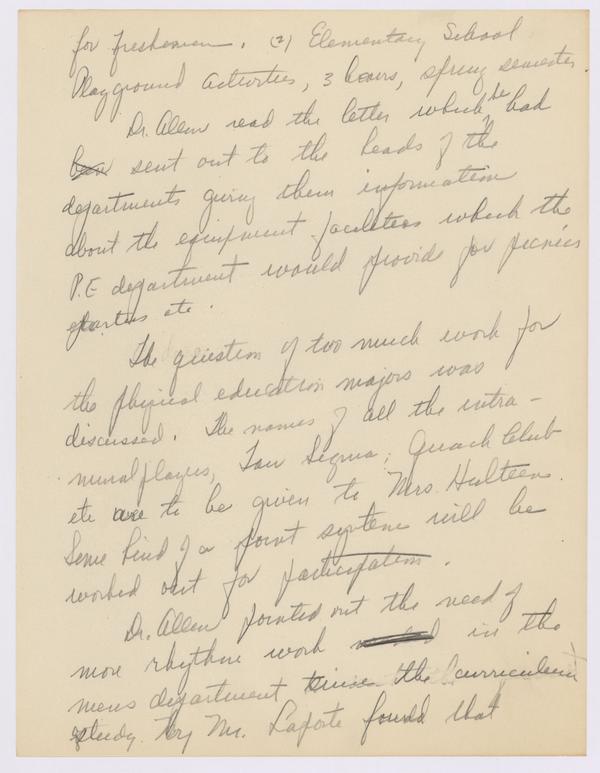 for freshemen. (2) Elementary School
Playground activities, 3 hours, spring semester
Dr. Allen read the letter which he had
sent out to the heads of the
departments giving them information
about the equipment facilities which the
P.E department would provide for picnics
parties etc.
The question of too much work for
the physical education majors was
discussed. The names of all the intra-
mural players, Tau Sigma, Quack Club
etc are to be given to Mrs. Hulteen.
Some kind of a point system will be
worked out for participation.
Dr. Allen pointed out the need of
more rhythm work in the
mens department since the curriculum
study by Mr. Laporte found that